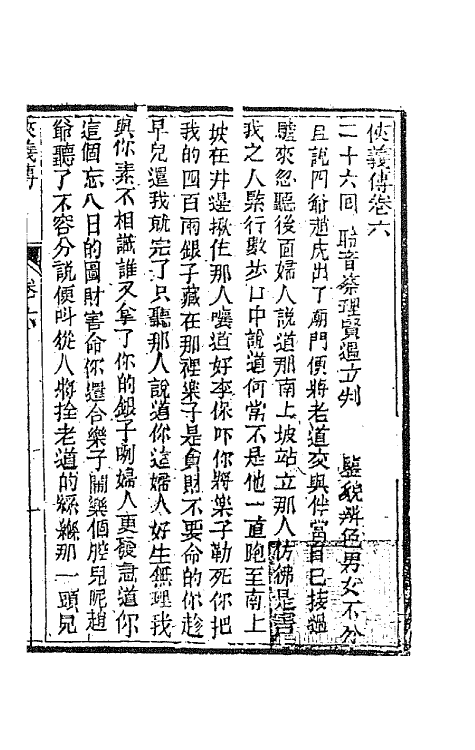 俠義傳卷六
二十六回 聆音察理賢愚立判 鑒貌辨色男女不分
且說四爺趙虎出了廟門便將老道交與伴當自己接過
驢來忽聽後面婦人說道那南上坡站立那人仿彿是害
我之人緊行數步口中說道何嘗不是他一直跑至南上
坡在井邊揪住那人嚷道好李保吓你將樂子勒死你把
我的四百兩銀子藏在那裡樂子是貪財不要命的你趁
早兒還我就完了只聽那人說道你這婦人好生無理我
與你素不相識誰又拿了你的銀子咧婦人更發急道你
這個忘八日的圖財害命你還合樂子鬧樂個腔兒呢趙
爺聽了不容分說便叫從人將拴老道的縧縧那一頭兒
俠義傳
卷六